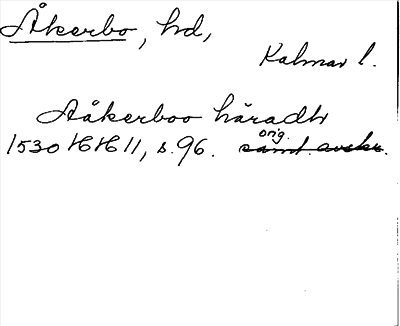 Åkerbo, hd,
Kalmar l.
Aåkerboo häradh
orig.
1530 HH 11, s. 96. samt. avskr.